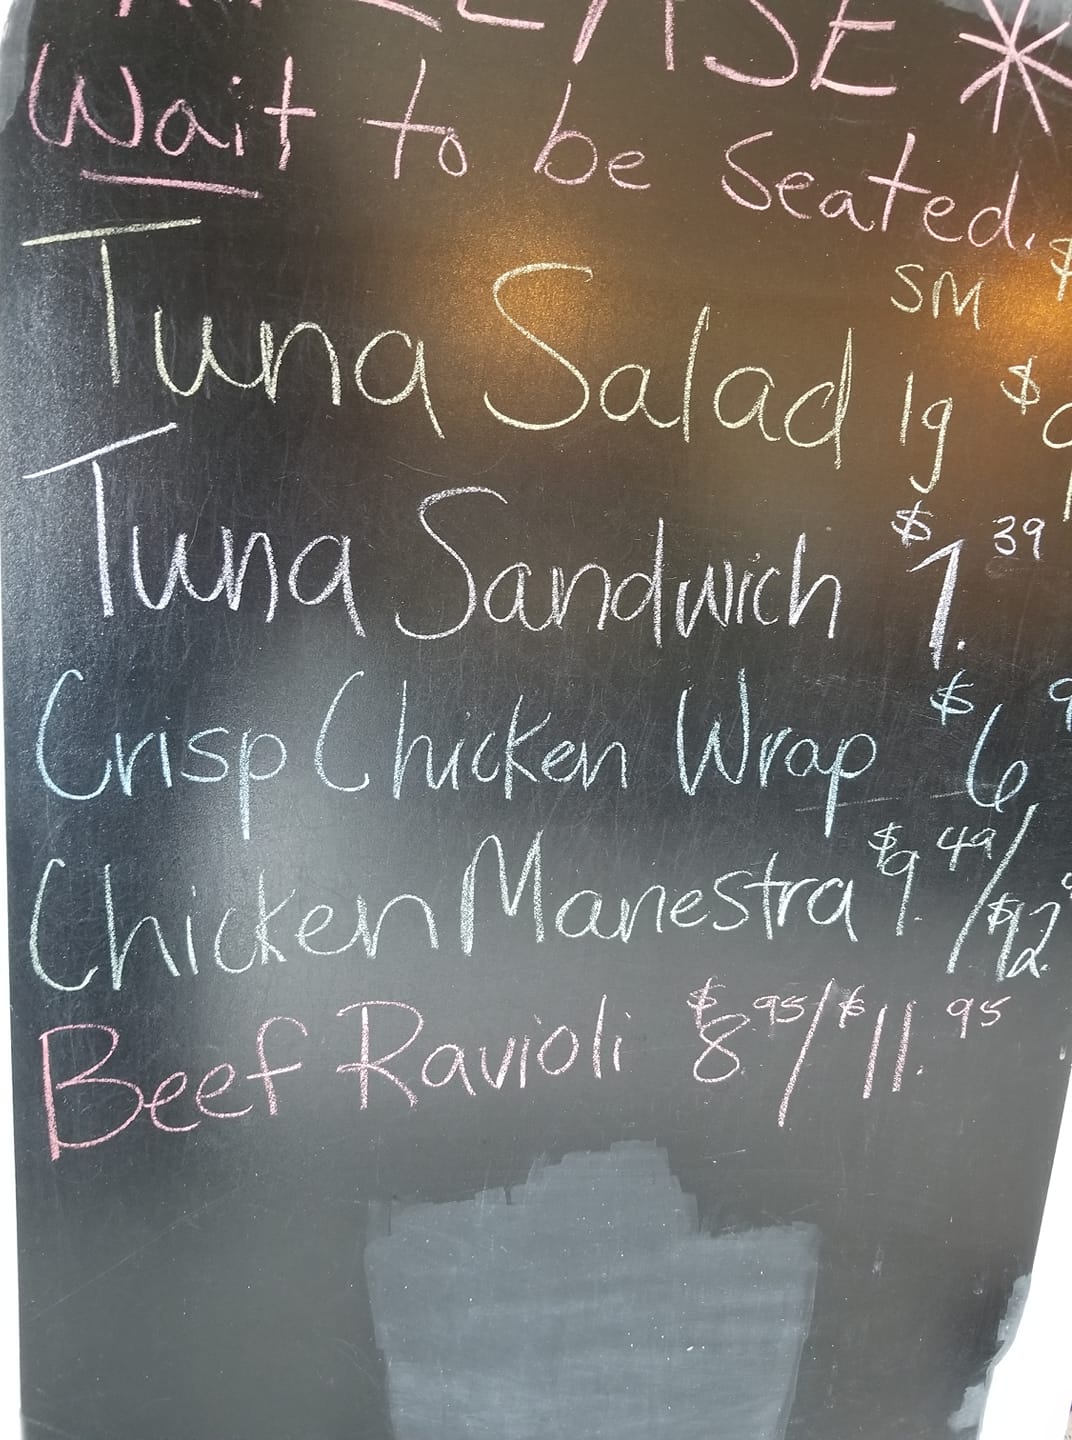 * PLEASE *
Wait to be seated.
Tuna Salad SM $
lg $
Tuna Sandwich $7.39
Crisp Chicken Wrap $6.
Chicken Manestra $9.49/$12.
Beef Ravioli $8.95/$11.95